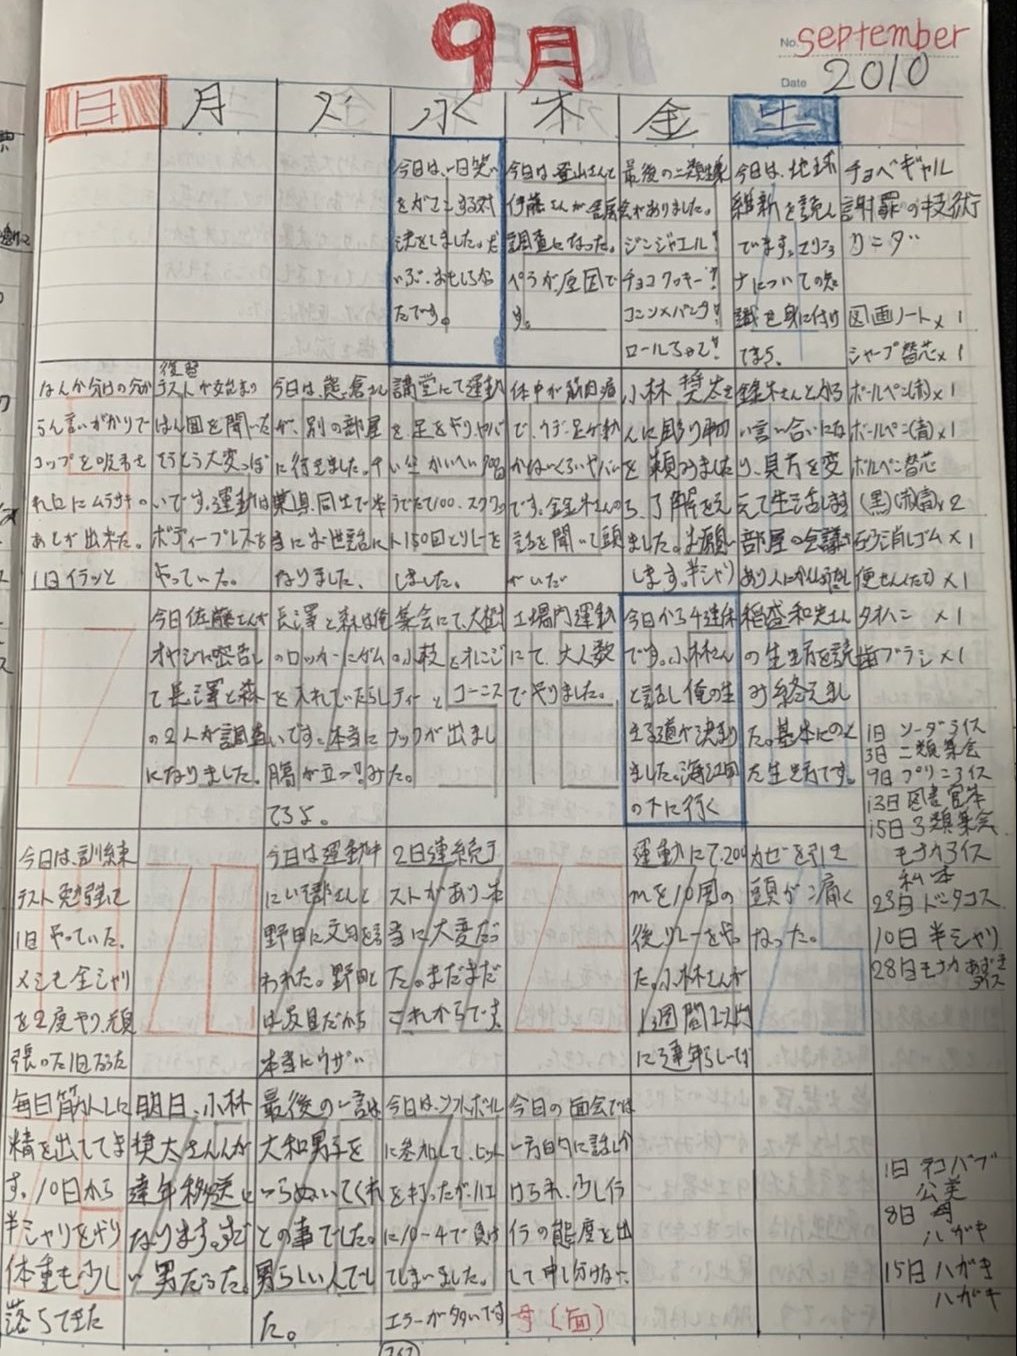 9月
No. september
Date 2010
日 月 火 水 木 金 土
今日は、一日笑い
をがまんする対
決をしました。だ
いぶ、おもしろか
ったです。
今日は登山さんと
伊藤さんが
調査になった。
ペラが原因で
す。
最後の二類集
会がありました。
ジンジャエール!
チョコクッキー!
コンソメパンチ!
ロールちゃん!
今日は、地球
維新を読ん
でます。
ナについての知
識を身に付け
てます。
チョベギャル
謝罪の技術
図画ノート×1
シャープ替芯×1
ボールペン(赤)×1
ボールペン(青)×1
ボールペン替芯
(黒)(赤)(青)×2
消しゴム×1
便せん(たて)×1
タオル ×1
歯ブラシ×1
なんか分けの分か
らん言いがかりで
コップを
れ口にムラサキの
あとが出来た。
1日イラッと
復習
テストが始まり
はん囲を聞いた
らとう大変っぽ
いです。運動は
ボディープレスを
やっていた。
今日は、熊倉さん
が、別の部屋
に行きました。千
葉県同士で本
当にお世話に
なりました。
講堂にて運動
を、足を
100、スクワッ
ト150回とリレーを
しました。
体中が筋肉痛
で、ウデ、足が動
かないくらいヤバい
です。金本さんの
話を聞いて頭
がいた
小林 奨太さ
んに彫り物
を頼みました
ら、了解をえ
ました。お願い
します。半シャリ
鈴木さんとかる
い言い合いにな
り、見方を変
えて生活します
部屋の会議も
あり
今日佐藤さんが
オヤジに密告し
て長澤と森
の2人が調査
になりました。
長澤と森は俺
のロッカーにガム
を入れていたらし
いです。本当に
腸が立つ!みた
てろよ。
集会にて、大樹
の小枝とオレンジ
ティーとコーニス
ナックが出まし
た。
工場内運動
にて、大人数
でやりました。
今日から4連休
です。小林さん
と話し俺の生
きる道が決まり
ました。
の下に行く
稲盛和夫さん
の生き方を読
み終えまし
た。基本にのっと
た生き方です。
1日 ソーダアイス
3日 二類集会
9日 プリンアイス
13日 図書官本
15日 3類集会
モナカアイス
私本
23日 ドンタコス
10日 半シャリ
28日 モナカあずき
アイス
今日は、訓練
テスト勉強を
1日やっていた。
メシも全シャリ
を2度やり、頑
張った1日だった
今日は運動中
にいさんと
野田に文句を言
われた。野田と
は反目だから
本当にウザい
2日連続テ
ストがあり、本
当に大変だっ
た。まだまだ
これからです。
運動にて、200
mを10周の
後リレーをやっ
た。小林さんが
1週間以内
に3連単らしいす
カゼを引き
頭がこ痛く
なった。
毎日筋トレに
精を出してま
す。10日から
半シャリをギり
体重も少し
落ちてきた
明日、小林
奨太さんが
達年移送に
なります。すご
い男だった。
最後の一言は
大和男子を
つらぬいてくれ
との事でした。
男らしい人でし
た。
今日は、ソフトボール
に参加して、ヒット
を打ったが、
に10-4で負け
てしまいました。
エラーが多いです
今日の面会では
一方的に話しか
けられ、少しイ
ライラの態度を出
して申し分けない。
母(面)
1日 テコバブ
公美
8日 母
ハガキ
15日 ハガキ
ハガキ